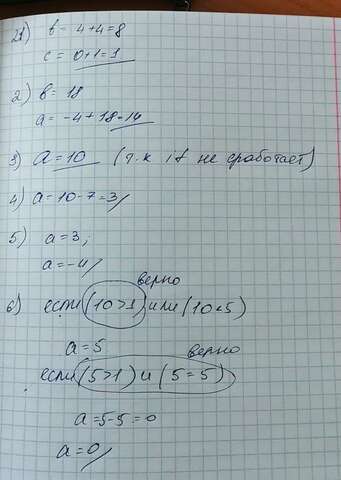 21) в = 4+4=8
c = 0+1=1
2) в = 18
a = -4+18=14
3) a = 10 (т.к if не сработает)
4) a = 10-7=3
5) a=3;
a=-4
верно
6) если (10>1) или (10<5)
a = 5
верно
если (5>1) и (5=5)
a = 5-5=0
a=0